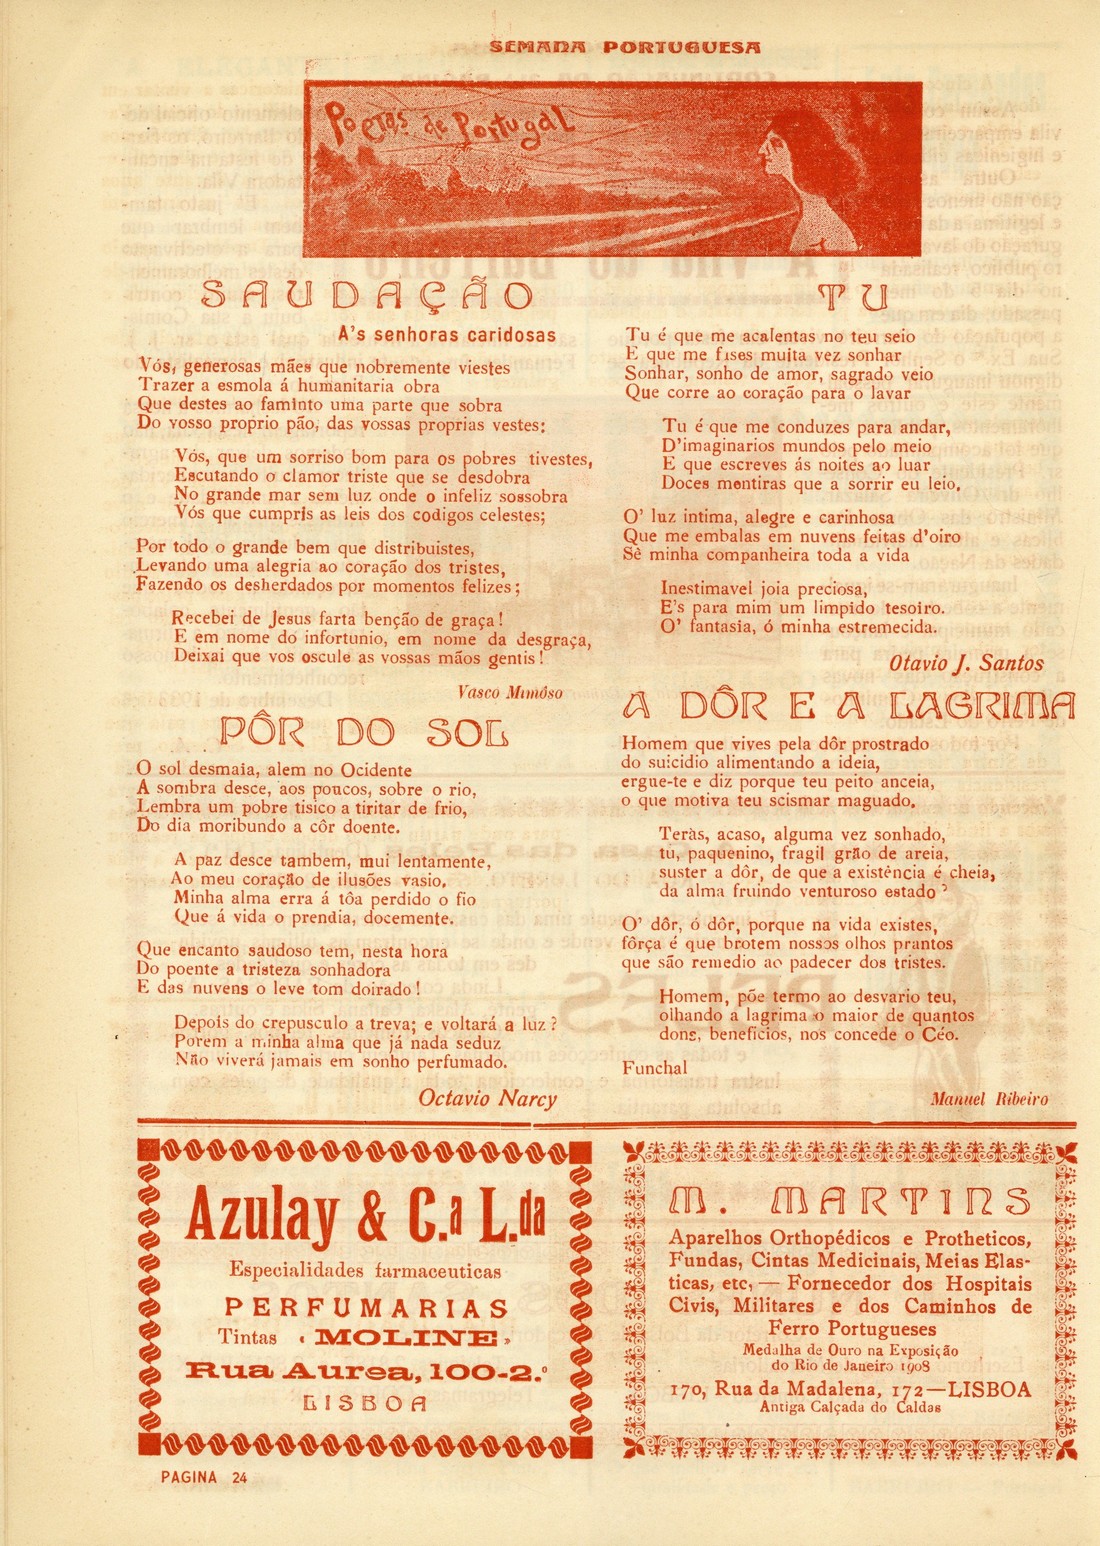 SEMANA PORTUGUESA
Poetas de Portugal
SAUDAÇÃO
A's senhoras caridosas
Vós, generosas mães que nobremente viestes
Trazer a esmola á humanitaria obra
Que destes ao faminto uma parte que sobra
Do vosso proprio pão, das vossas proprias vestes;
Vós, que um sorriso bom para os pobres tivestes,
Escutando o clamor triste que se desdobra
No grande mar sem luz onde o infeliz sossobra
Vós que cumpris as leis dos codigos celestes;
Por todo o grande bem que distribuistes,
Levando uma alegria ao coração dos tristes,
Fazendo os desherdados por momentos felizes;
Recebei de Jesus farta benção de graça!
E em nome do infortunio, em nome da desgraça,
Deixai que vos oscule as vossas mãos gentis!
Vasco Mimôso
PÔR DO SOL
O sol desmaia, alem no Ocidente
A sombra desce, aos poucos, sobre o rio,
Lembra um pobre tisico a tiritar de frio,
Do dia moribundo a côr doente.
A paz desce tambem, mui lentamente,
Ao meu coração de ilusões vasio,
Minha alma erra á tôa perdido o fio
Que á vida o prendia, docemente.
Que encanto saudoso tem, nesta hora
Do poente a tristeza sonhadora
E das nuvens o leve tom doirado!
Depois do crepusculo a treva; e voltará a luz?
Porem a minha alma que já nada seduz
Não viverá jamais em sonho perfumado.
Octavio Narcy
TU
Tu é que me acalentas no teu seio
E que me fises muita vez sonhar
Sonhar, sonho de amor, sagrado veio
Que corre ao coração para o lavar
Tu é que me conduzes para andar,
D'imaginarios mundos pelo meio
E que escreves ás noites ao luar
Doces mentiras que a sorrir eu leio.
O' luz intima, alegre e carinhosa
Que me embalas em nuvens feitas d'oiro
Sè minha companheira toda a vida
Inestimavel joia preciosa,
E's para mim um limpido tesoiro.
O' fantasia, ó minha estremecida.
Otavio J. Santos
A DÔR E A LAGRIMA
Homem que vives pela dôr prostrado
do suicidio alimentando a ideia,
ergue-te e diz porque teu peito anceia,
o que motiva teu scismar maguado.
Teràs, acaso, alguma vez sonhado,
tu, paquenino, fragil grão de areia,
suster a dôr, de que a existência é cheia,
da alma fruindo venturoso estado?
O' dôr, ó dôr, porque na vida existes,
fôrça é que brotem nossos olhos prantos
que são remedio ao padecer dos tristes.
Homem, põe termo ao desvario teu,
olhando a lagrima o maior de quantos
dons, beneficios, nos concede o Céo.
Funchal
Manuel Ribeiro
Azulay & C.a L.da
Especialidades farmaceuticas
PERFUMARIAS
Tintas «MOLINE»
Rua Aurea, 100-2.º
LISBOA
M. MARTINS
Aparelhos Orthopédicos e Protheticos,
Fundas, Cintas Medicinais, Meias Elas-
ticas, etc, — Fornecedor dos Hospitais
Civis, Militares e dos Caminhos de
Ferro Portugueses
Medalha de Ouro na Exposição
do Rio de Janeiro 1908
170, Rua da Madalena, 172—LISBOA
Antiga Calçada do Caldas
PAGINA 24